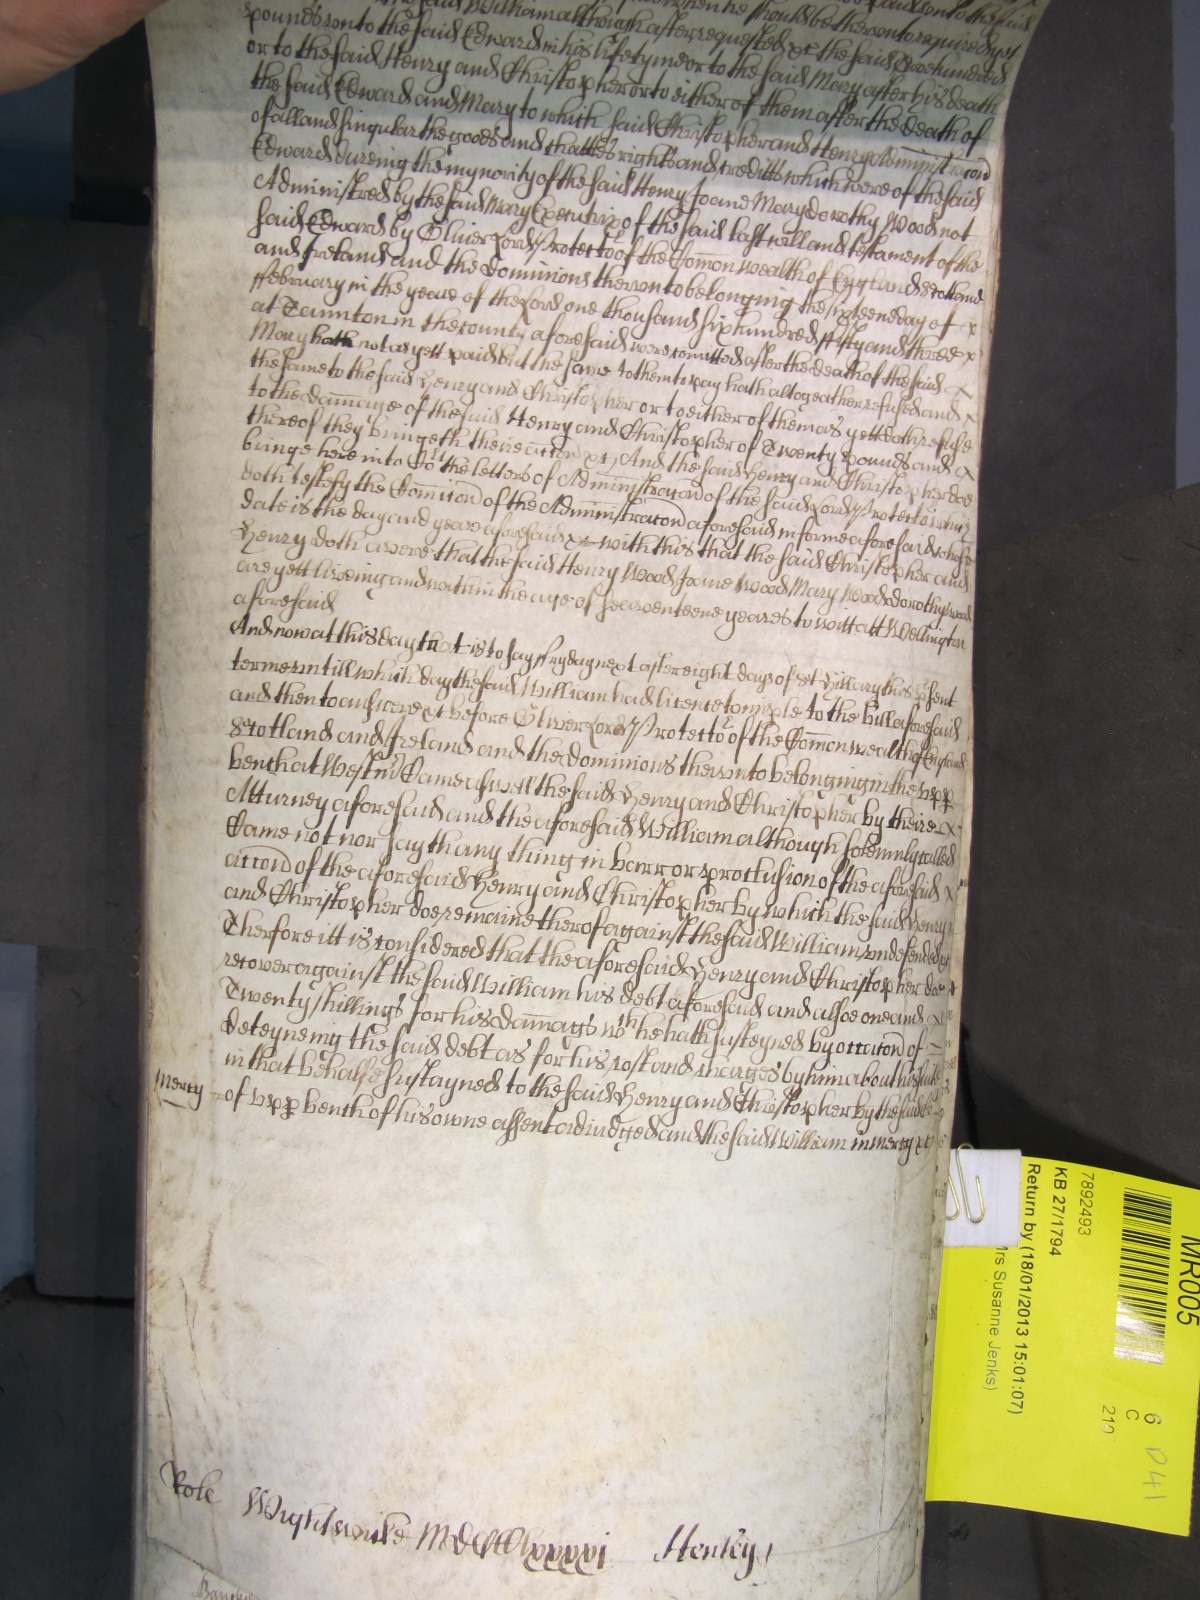 the said William although after requested &c the said Two hundred
pounds unto the said Edward in his lifetyme or to the said Mary after his death
or to the said Henry and Christopher or to either of them after the death of
the said Edward and Mary to which said Christopher and Henry Administracon
of all and singular the goods and chattles rights and creditts which were of the said
Edward dureing the mynority of the said Henry Joane Mary dorothy Wood not
Administred by the said Mary Executrix of the said last will and testament of the
said Edward by Oliver Lord Protector of the Comon wealth of England Scotland
and Ireland and the Dominions therunto belonging the sixteene day of x
ffebruary in the yeare of the Lord one thousand six hundred fifty and three x
at Taunton in the county aforesaid were comitted after the death of the said x
Mary hath not as yett paid but the same to them to pay hath altogeather refused and x
the same to the said Henry and Christopher or to either of them as yett doth refuse
to the damage of the said Henry and Christopher of Twenty pounds and x
thereof they bringeth theire accon &c And the said Henry and Christopher doe
bringe here into Court the letters of Administracon of the said Lord Protector which
doth testefy the Comition of the Administracon aforesaid in forme aforesaid whose
date is the day and yeare aforesaid &c with this that the said Christopher and
Henry doth averre that the said Henry Wood Joane Wood Mary Wood dorothy wood
are yett liveing and within the age of seaventeene yeares to witt att Wellington
aforesaid
And now at this day that is to say ffryday next after eight dayes of St Hillary this psent
terme untill which day the said William had licence to imple to the bill aforesaid
and then to answere &c before Oliver Lord Protector of the Comon wealth of England
Scotland and Ireland and the dominions therunto belonging in the upp
bench at Westmr Came aswell the said Henry and Christopher by theire x
Atturney aforesaid and the aforesaid William although solemnly called
Came not nor sayth any thing in barr or preclusion of the aforesaid x
accon of the aforesaid Henry and Christopher by which the said Henry
and Christopher doe remaine therof against the said William undefended &c
Therfore itt is considered that the aforesaid Henry and Christopher doe
recover against the said William his debt aforesaid and alsoe one and x
Twenty shillings for his damags wch he hath susteyned by occacon of
deteyneing the said debt as for his costs and charges by him about his suite
in that behalfe sustayned to the said Henry and Christopher by the said
of upp bench of his owne assent adiudged and the said William in mercy &c
Mercy
Role Wightwicke MDCCClxxxxvi Henley
7892493
KB 27/1794
Return by (18/01/2013 15:01:07)
Mrs Susanne Jenks)
MR005
6
C
210
D41